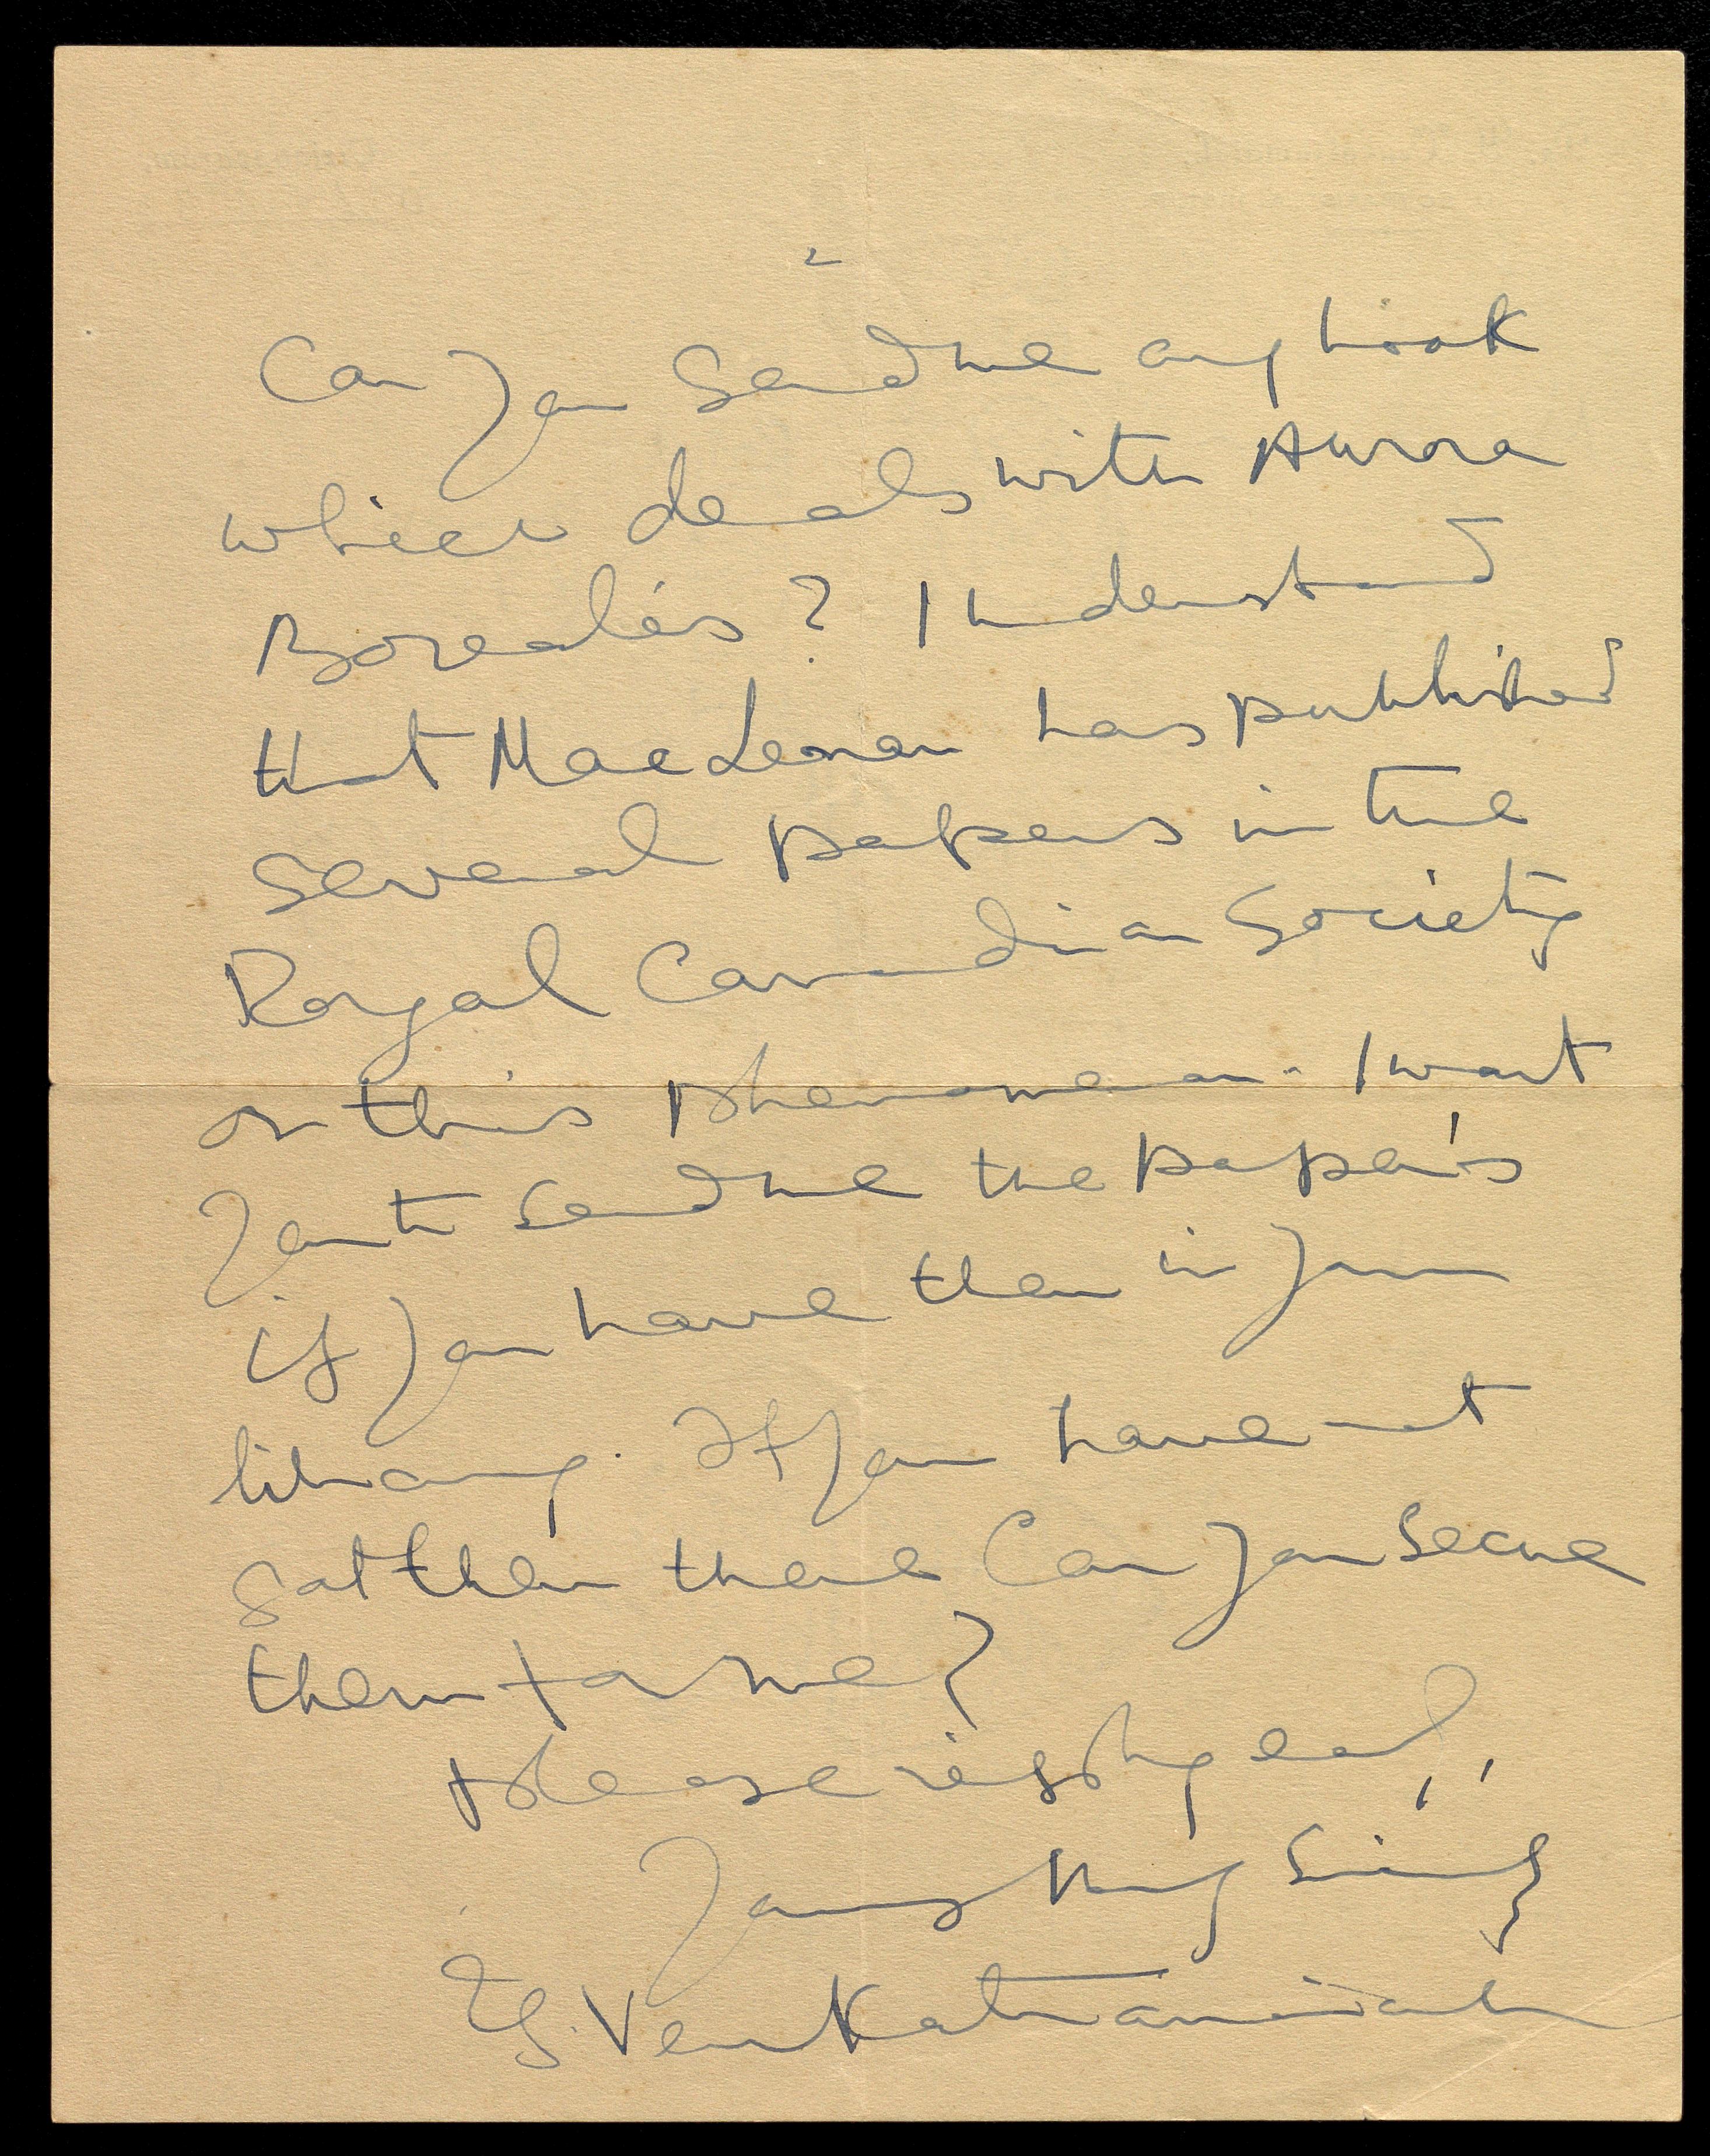 2
Can you send me any book
which deals with Aurora
Borealis? I understand
that MacLenan has published
several papers in the
Royal Canadian Society
on this phenomenon. I want
you to send me the papers
if you have them in your
library. If you have not
got them there Can you secure
them for me?
Please reply early,
Yours Very Sincy
Venkatramaiah